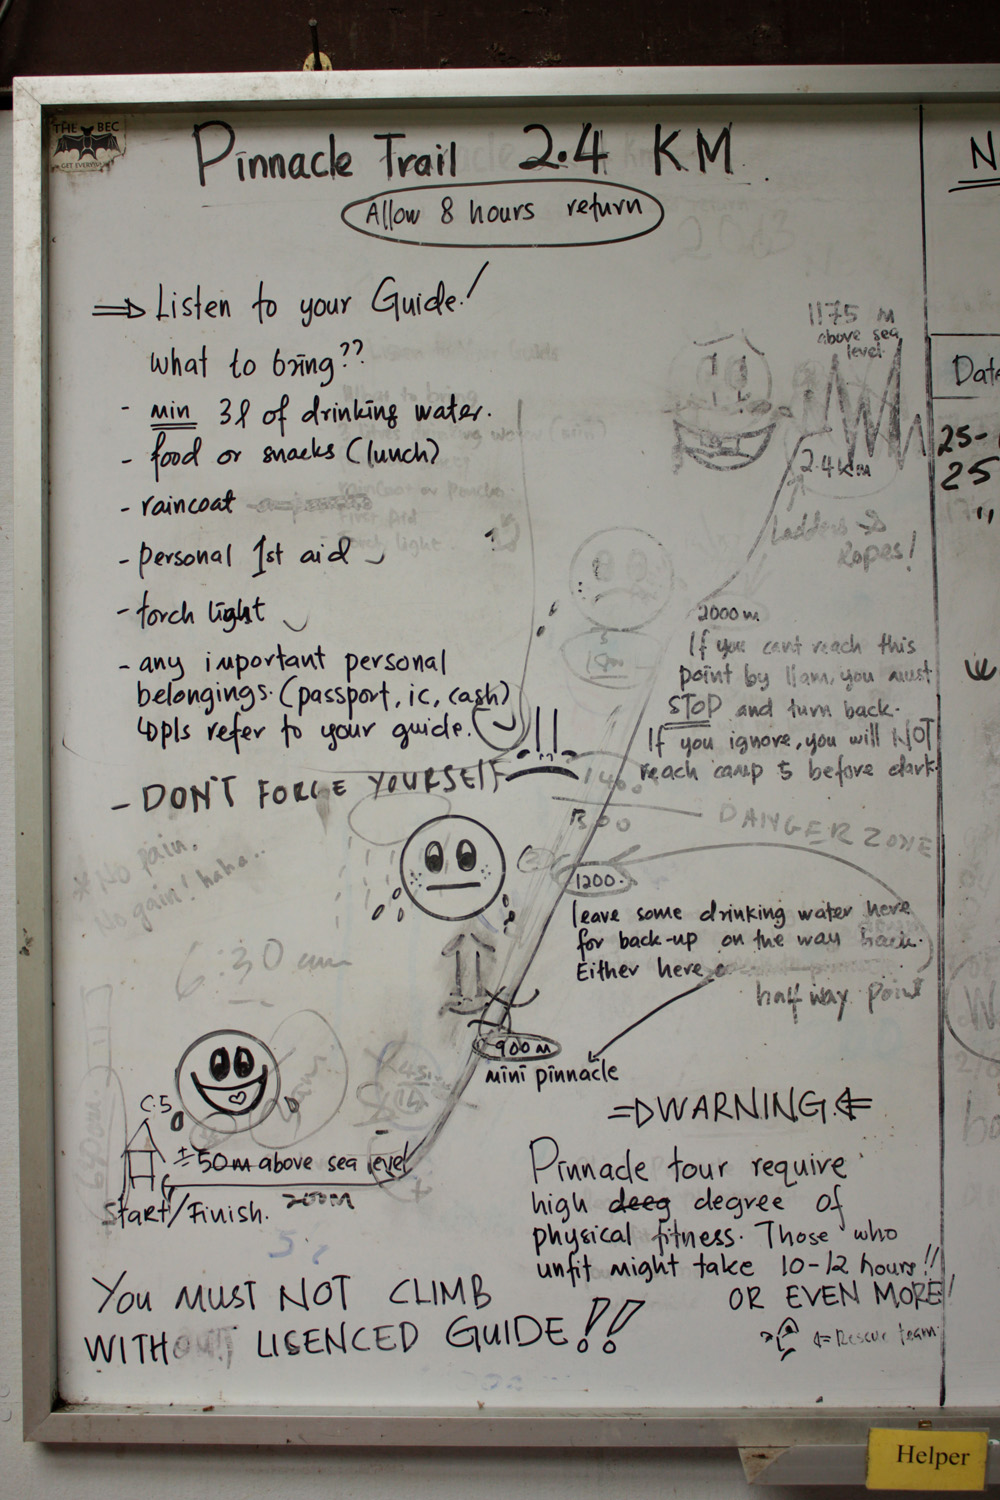 THE BEC
Pinnacle Trail 2.4 KM
Allow 8 hours return
⇒ Listen to your Guide!
What to bring??
- min 3l of drinking water.
- food or snacks (lunch)
- raincoat
- personal 1st aid
- torch light
- any important personal
belongings. (passport, ic, cash)
↳ pls refer to your guide.
- DON'T FORCE YOURSELF
* No pain,
No gain! haha..
6:30 am
1175 m
above sea
level.
2.4 km
Ladders &
Ropes!
2000m
If you cant reach this
point by 11am, you must
STOP and turn back.
If you ignore, you will NOT
reach camp 5 before dark
DANGER ZONE
1200.
leave some drinking water here
for back-up on the way back.
Either here
half way point
900m
mini pinnacle
C.5
± 50m above sea level
200m
Start/Finish.
⇒ WARNING ⇐
Pinnacle tour require
high deeg degree of
physical fitness. Those who
unfit might take 10-12 hours!!
OR EVEN MORE!
⇐ Rescue team.
YOU MUST NOT CLIMB
WITHOUT LISENCED GUIDE!!
N
Date
25-
25
Helper